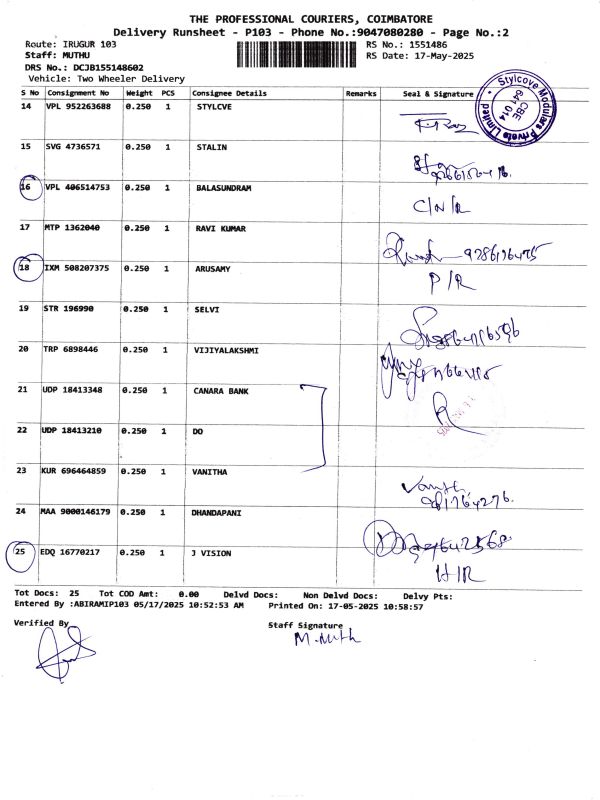 THE PROFESSIONAL COURIERS, COIMBATORE
Delivery Runsheet - P103 - Phone No.:9047080280 - Page No.:2
Route: IRUGUR 103 RS No.: 1551486
Staff: MUTHU RS Date: 17-May-2025
DRS No.: DCJB155148602
Vehicle: Two Wheeler Delivery
S No Consignment No Weight PCS Consignee Details Remarks Seal & Signature
Stylcove Modulars Private Limited
CBE
641 014
14 VPL 952263688 0.250 1 STYLCVE
15 SVG 4736571 0.250 1 STALIN
16 VPL 406514753 0.250 1 BALASUNDRAM
C/N/R
17 MTP 1362040 0.250 1 RAVI KUMAR
18 IXM 508207375 0.250 1 ARUSAMY
P/R
19 STR 196990 0.250 1 SELVI
20 TRP 6898446 0.250 1 VIJIYALAKSHMI
21 UDP 18413348 0.250 1 CANARA BANK
22 UDP 18413210 0.250 1 DO
23 KUR 696464859 0.250 1 VANITHA
24 MAA 9000146179 0.250 1 DHANDAPANI
25 EDQ 16770217 0.250 1 J VISION
H/R
Tot Docs: 25 Tot COD Amt: 0.00 Delvd Docs: Non Delvd Docs: Delvy Pts:
Entered By :ABIRAMIP103 05/17/2025 10:52:53 AM Printed On: 17-05-2025 10:58:57
Verified By Staff Signature
M. Muth